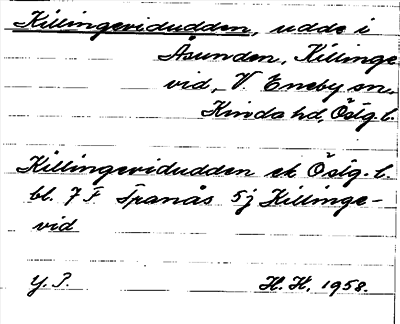 Killingevidudden, udde i
Åsunden, Killinge
vid, V. Eneby sn,
Kinda hd, Östg. l.
Killingevidudden ek Östg. l.
bl. 7 F Tranås 5j Killinge-
vid
Y. P. H. K. 1958.